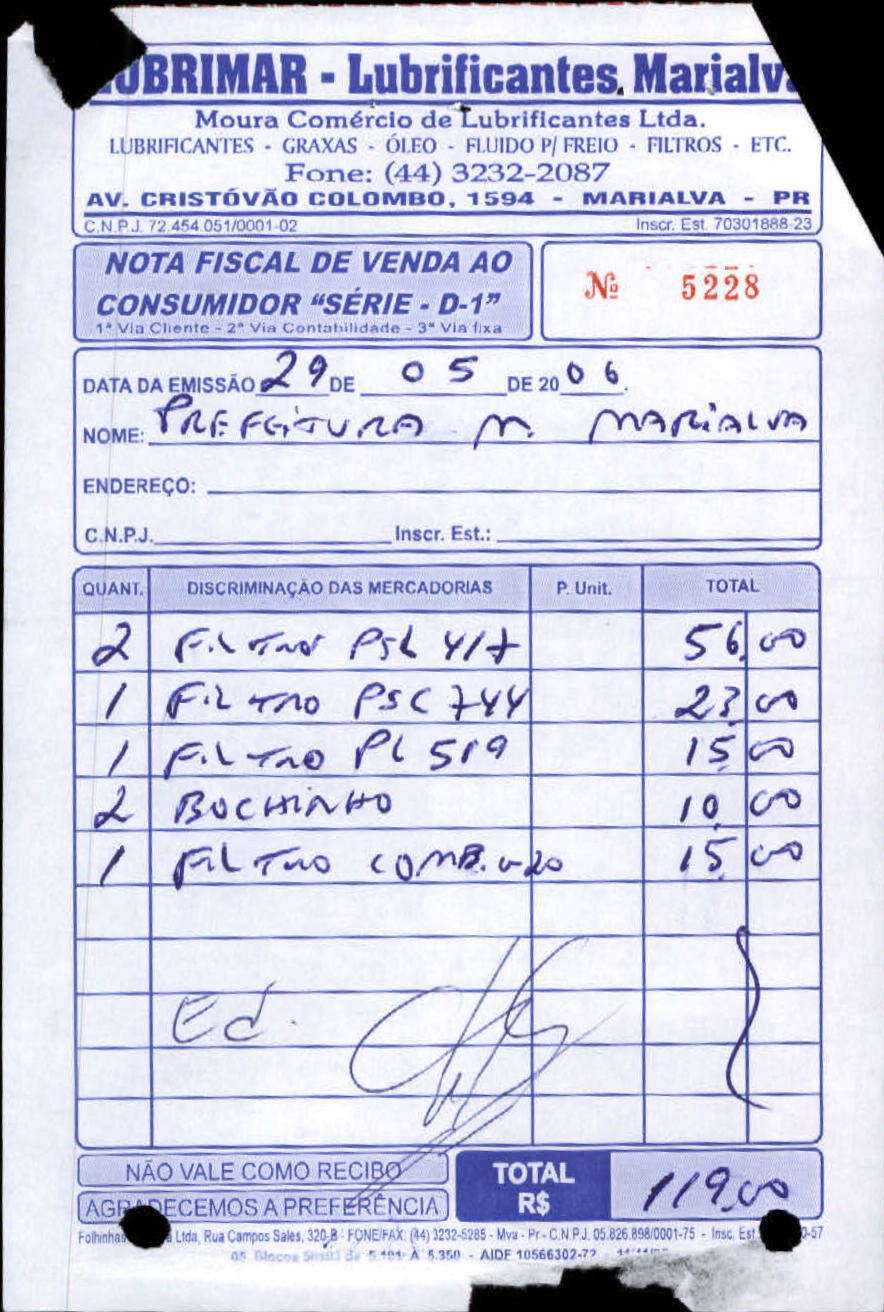 LUBRIMAR - Lubrificantes Marialva
Moura Comércio de Lubrificantes Ltda.
LUBRIFICANTES - GRAXAS - ÓLEO - FLUIDO P/ FREIO - FILTROS - ETC.
Fone: (44) 3232-2087
AV. CRISTÓVÃO COLOMBO, 1594 - MARIALVA - PR
C.N.P.J. 72.454.051/0001-02 Inscr. Est. 70301888-23
NOTA FISCAL DE VENDA AO
CONSUMIDOR "SÉRIE - D-1"
1ª Via Cliente - 2ª Via Contabilidade - 3ª Via fixa
Nº 5228
DATA DA EMISSÃO 29 DE 05 DE 2006.
NOME: PREFEITURA M. MARIALVA
ENDEREÇO:
C.N.P.J. Inscr. Est.:
QUANT. DISCRIMINAÇÃO DAS MERCADORIAS P. Unit. TOTAL
2 FILTRO PSL 417 56,00
1 FILTRO PSC 744 23,00
1 FILTRO PL 519 15,00
2 BUCHINHO 10,00
1 FILTRO COMB. 15,00
Ed.
NÃO VALE COMO RECIBO
AGRADECEMOS A PREFERÊNCIA
TOTAL
R$ 119,00
Folhinhas Ltda, Rua Campos Sales, 320-B - FONE/FAX: (44) 3232-5285 - Mva - Pr - C.N.P.J. 05.826.898/0001-75 - Insc. Est 0-57
05 Blocos de 5.101 À 5.350 - AIDF 10566302-72 -